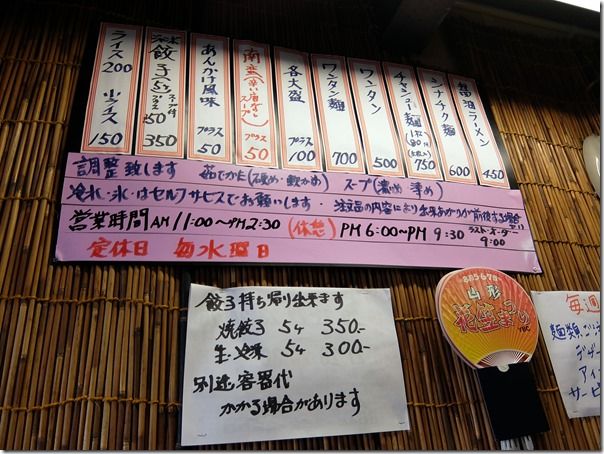 醤油ラーメン 450
シナチク麺 600
チャーシュー麺 750
ワンタン 500
ワンタン麺 700
各大盛 プラス 100
南蛮 プラス 50
あんかけ風味 プラス 50
餃子 スープ付 プラス50 350
ライス200 小ライス 150
調整致します ゆでかた(硬め・軟かめ) スープ(濃め 薄め)
冷水・氷・はセルフサービスでお願いします・ 注文品の内容により出来あがりが前後する場合
営業時間 AM11:00~PM2:30 (休憩) PM 6:00~PM 9:30 ラストオーダー 9:00
定休日 毎水曜日
餃子持ち帰り出来ます
焼餃子 5ケ 350-
生・冷凍 5ケ 300-
別途容器代
かかる場合があります
山形
花笠まつり
毎週
麺類
デザー
アイ
サービ